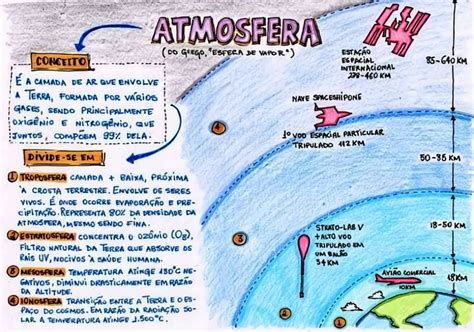 ATMOSFERA
(DO GREGO, "ESFERA DE VAPOR")
CONCEITO
É A CAMADA DE AR QUE ENVOLVE
A TERRA, FORMADA POR VÁRIOS
GASES, SENDO PRINCIPALMENTE
OXIGÊNIO E NITROGÊNIO, QUE
JUNTOS, COMPÕEM 99% DELA.
DIVIDE-SE EM
1 TROPOSFERA CAMADA + BAIXA, PRÓXIMA
À CROSTA TERRESTRE. ENVOLVE OS SERES
VIVOS. É ONDE OCORRE EVAPORAÇÃO E PRE-
CIPITAÇÃO. REPRESENTA 80% DA DENSIDADE DA
ATMOSFERA, MESMO SENDO FINA.
2 ESTRATOSFERA CONCENTRA O OZÔNIO (O3),
FILTRO NATURAL DA TERRA QUE ABSORVE OS
RAIS UV, NOCIVOS À SAÚDE HUMANA.
3 MESOSFERA TEMPERATURA ATINGE 120°C NE-
GATIVOS, DIMINUI DRASTICAMENTE EM RAZÃO
DA ALTITUDE.
4 IONOSFERA TRANSIÇÃO ENTRE A TERRA E O ES-
PAÇO DO COSMOS. EM RAZÃO DA RADIAÇÃO SO-
LAR A TEMPERATURA ATINGE 1.500°C.
ESTAÇÃO
ESPACIAL
INTERNACIONAL
278-460 KM
85-640 KM
NAVE SPACESHIPONE
4
1º VOO ESPACIAL PARTICULAR
TRIPULADO 112 KM
50-85 KM
3
STRATO-LAB V
+ ALTO VOO
TRIPULADO EM
UM BALÃO
34 KM
18-50 KM
2
AVIÃO COMERCIAL
10KM
18KM
1